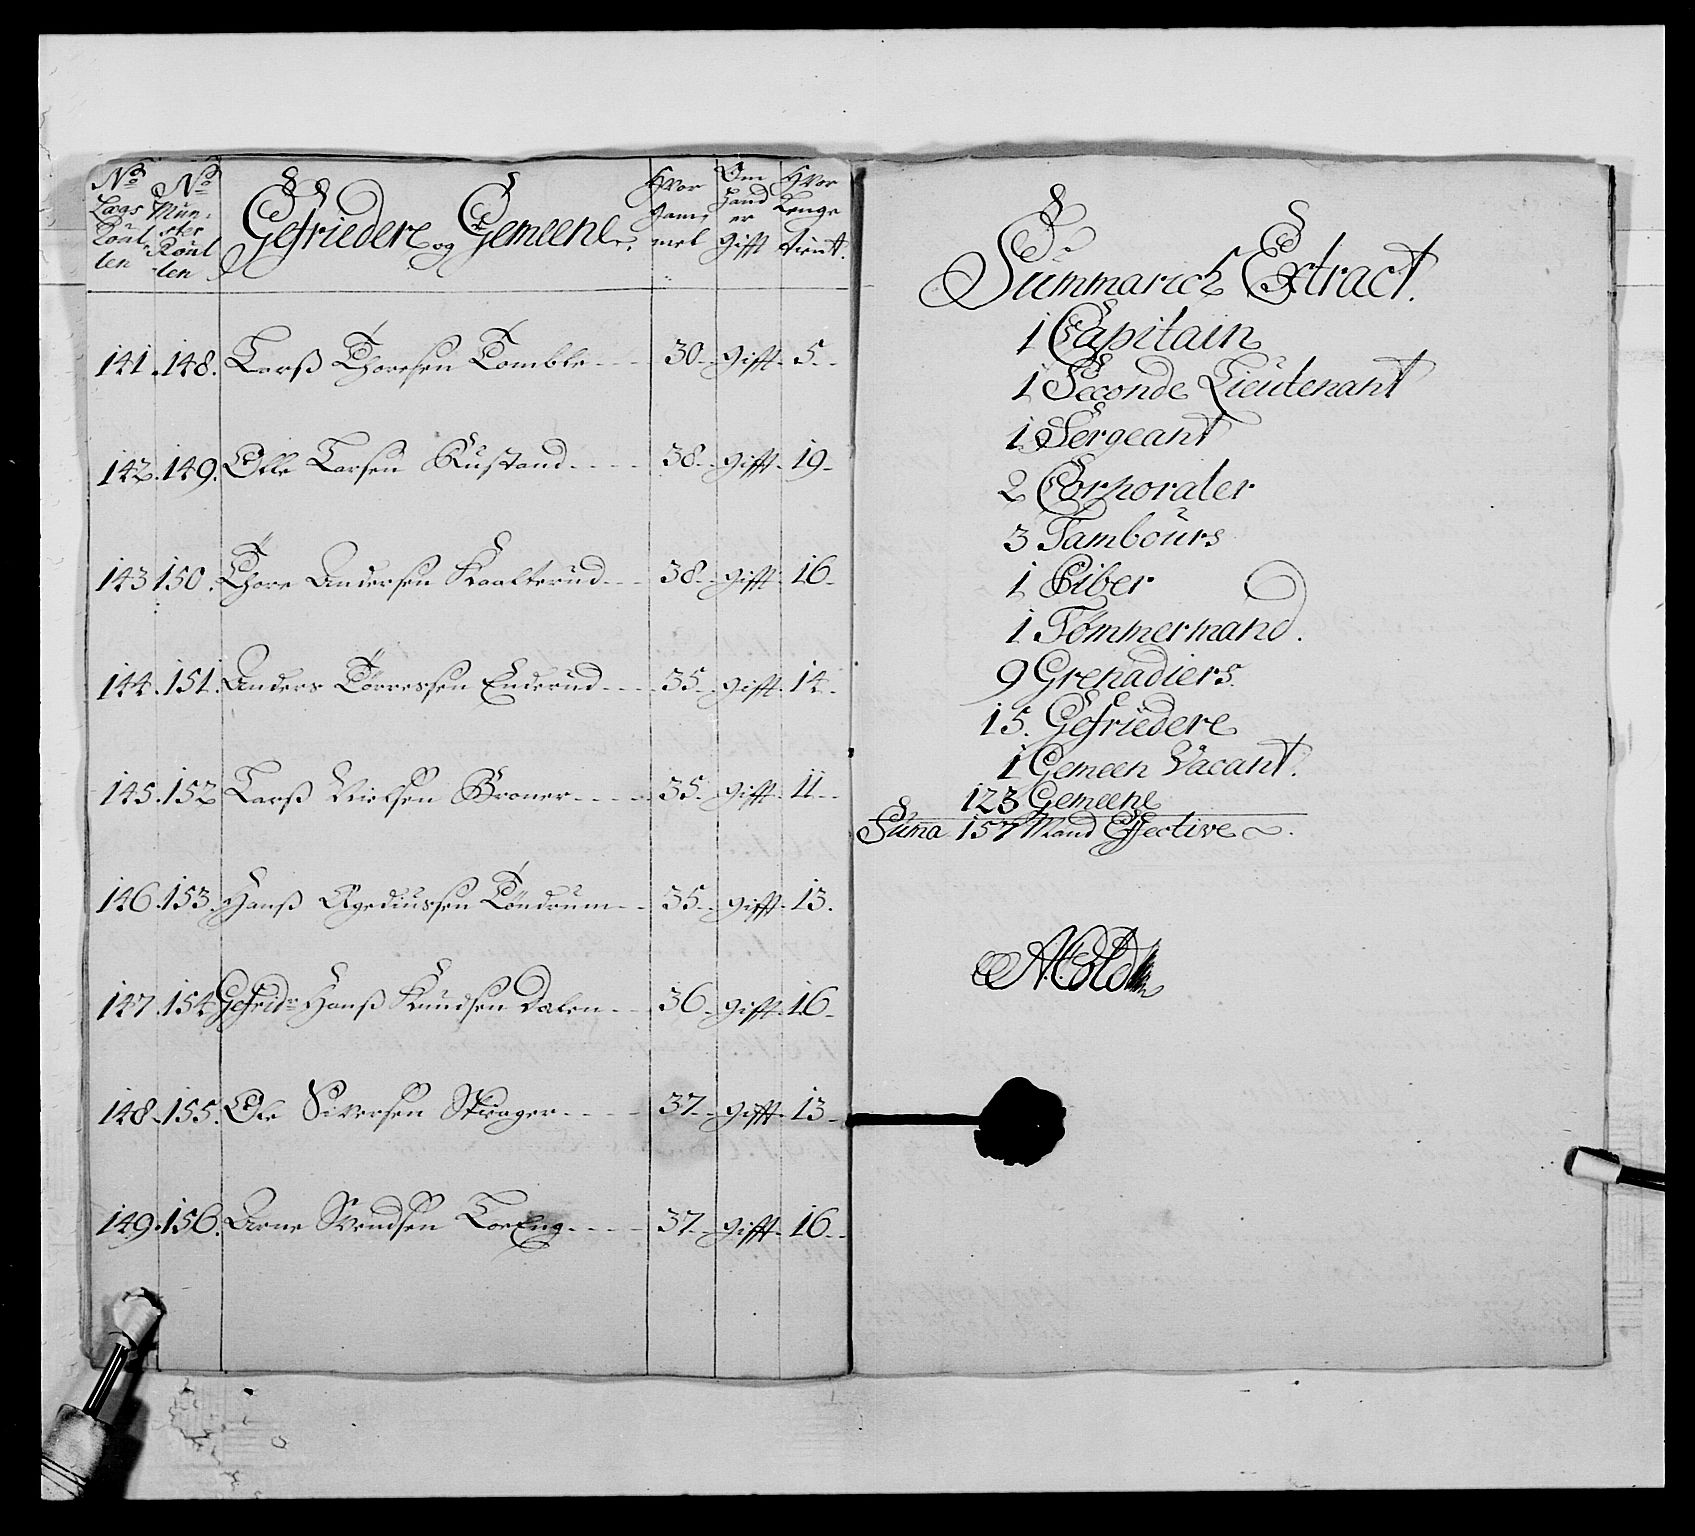 No No
Lags Mün-
Roul ster
len Roul
len
Gefriedere og Gemeene
Hvor gam̄
mel
Om hand er Gifft
Hvor Lenge tient.
141. 148. Larß Thoresen Tomble 30. gifft. 5.
142. 149. Olle Larsen Rustand 38. gifft. 19.
143 150. Thore Andersen Kaalterud 38. gifft. 16.
144. 151. Anders Torressen Enderud 35. gifft. 14.
145. 152 Larß Nielsen Broner 35. gifft. 11.
146. 153. Hanß Egediussen Tøndrum 35. gifft. 13.
147. 154 Gefrid: Hanß Knudsen Dalen 36. gifft. 16.
148. 155. Ole Siversen Skrager 37. gifft. 13
149. 156. Arne Svendsen ToeEng 37. gifft. 16.
Summarisch Extract.
1 Capitain
1 Seconde Lieutenant
1 Sergeant
2 Corporaler
3 Tambours
1 Piber
1 Tømmermand.
9 Grenadiers.
15. Gefriedere
1 Gemeen Vacant.
123 Gemeene
Suma 157 Mand Effective.